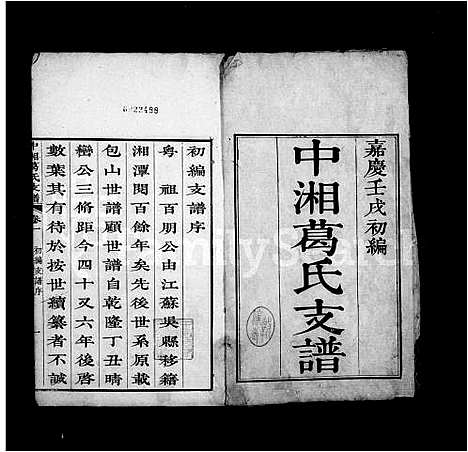 嘉慶壬戌初編
中湘葛氏支譜
初編支譜序
粵　祖百朋公由江蘇吳縣移籍
湘潭閱百餘年矣先後世系原載
包山世譜顧世譜自乾隆丁丑晴
巒公三脩距今四十又六年後啓
數葉其有待於按世續纂者不誠
中湘葛氏支譜
卷一
初編支譜序
一